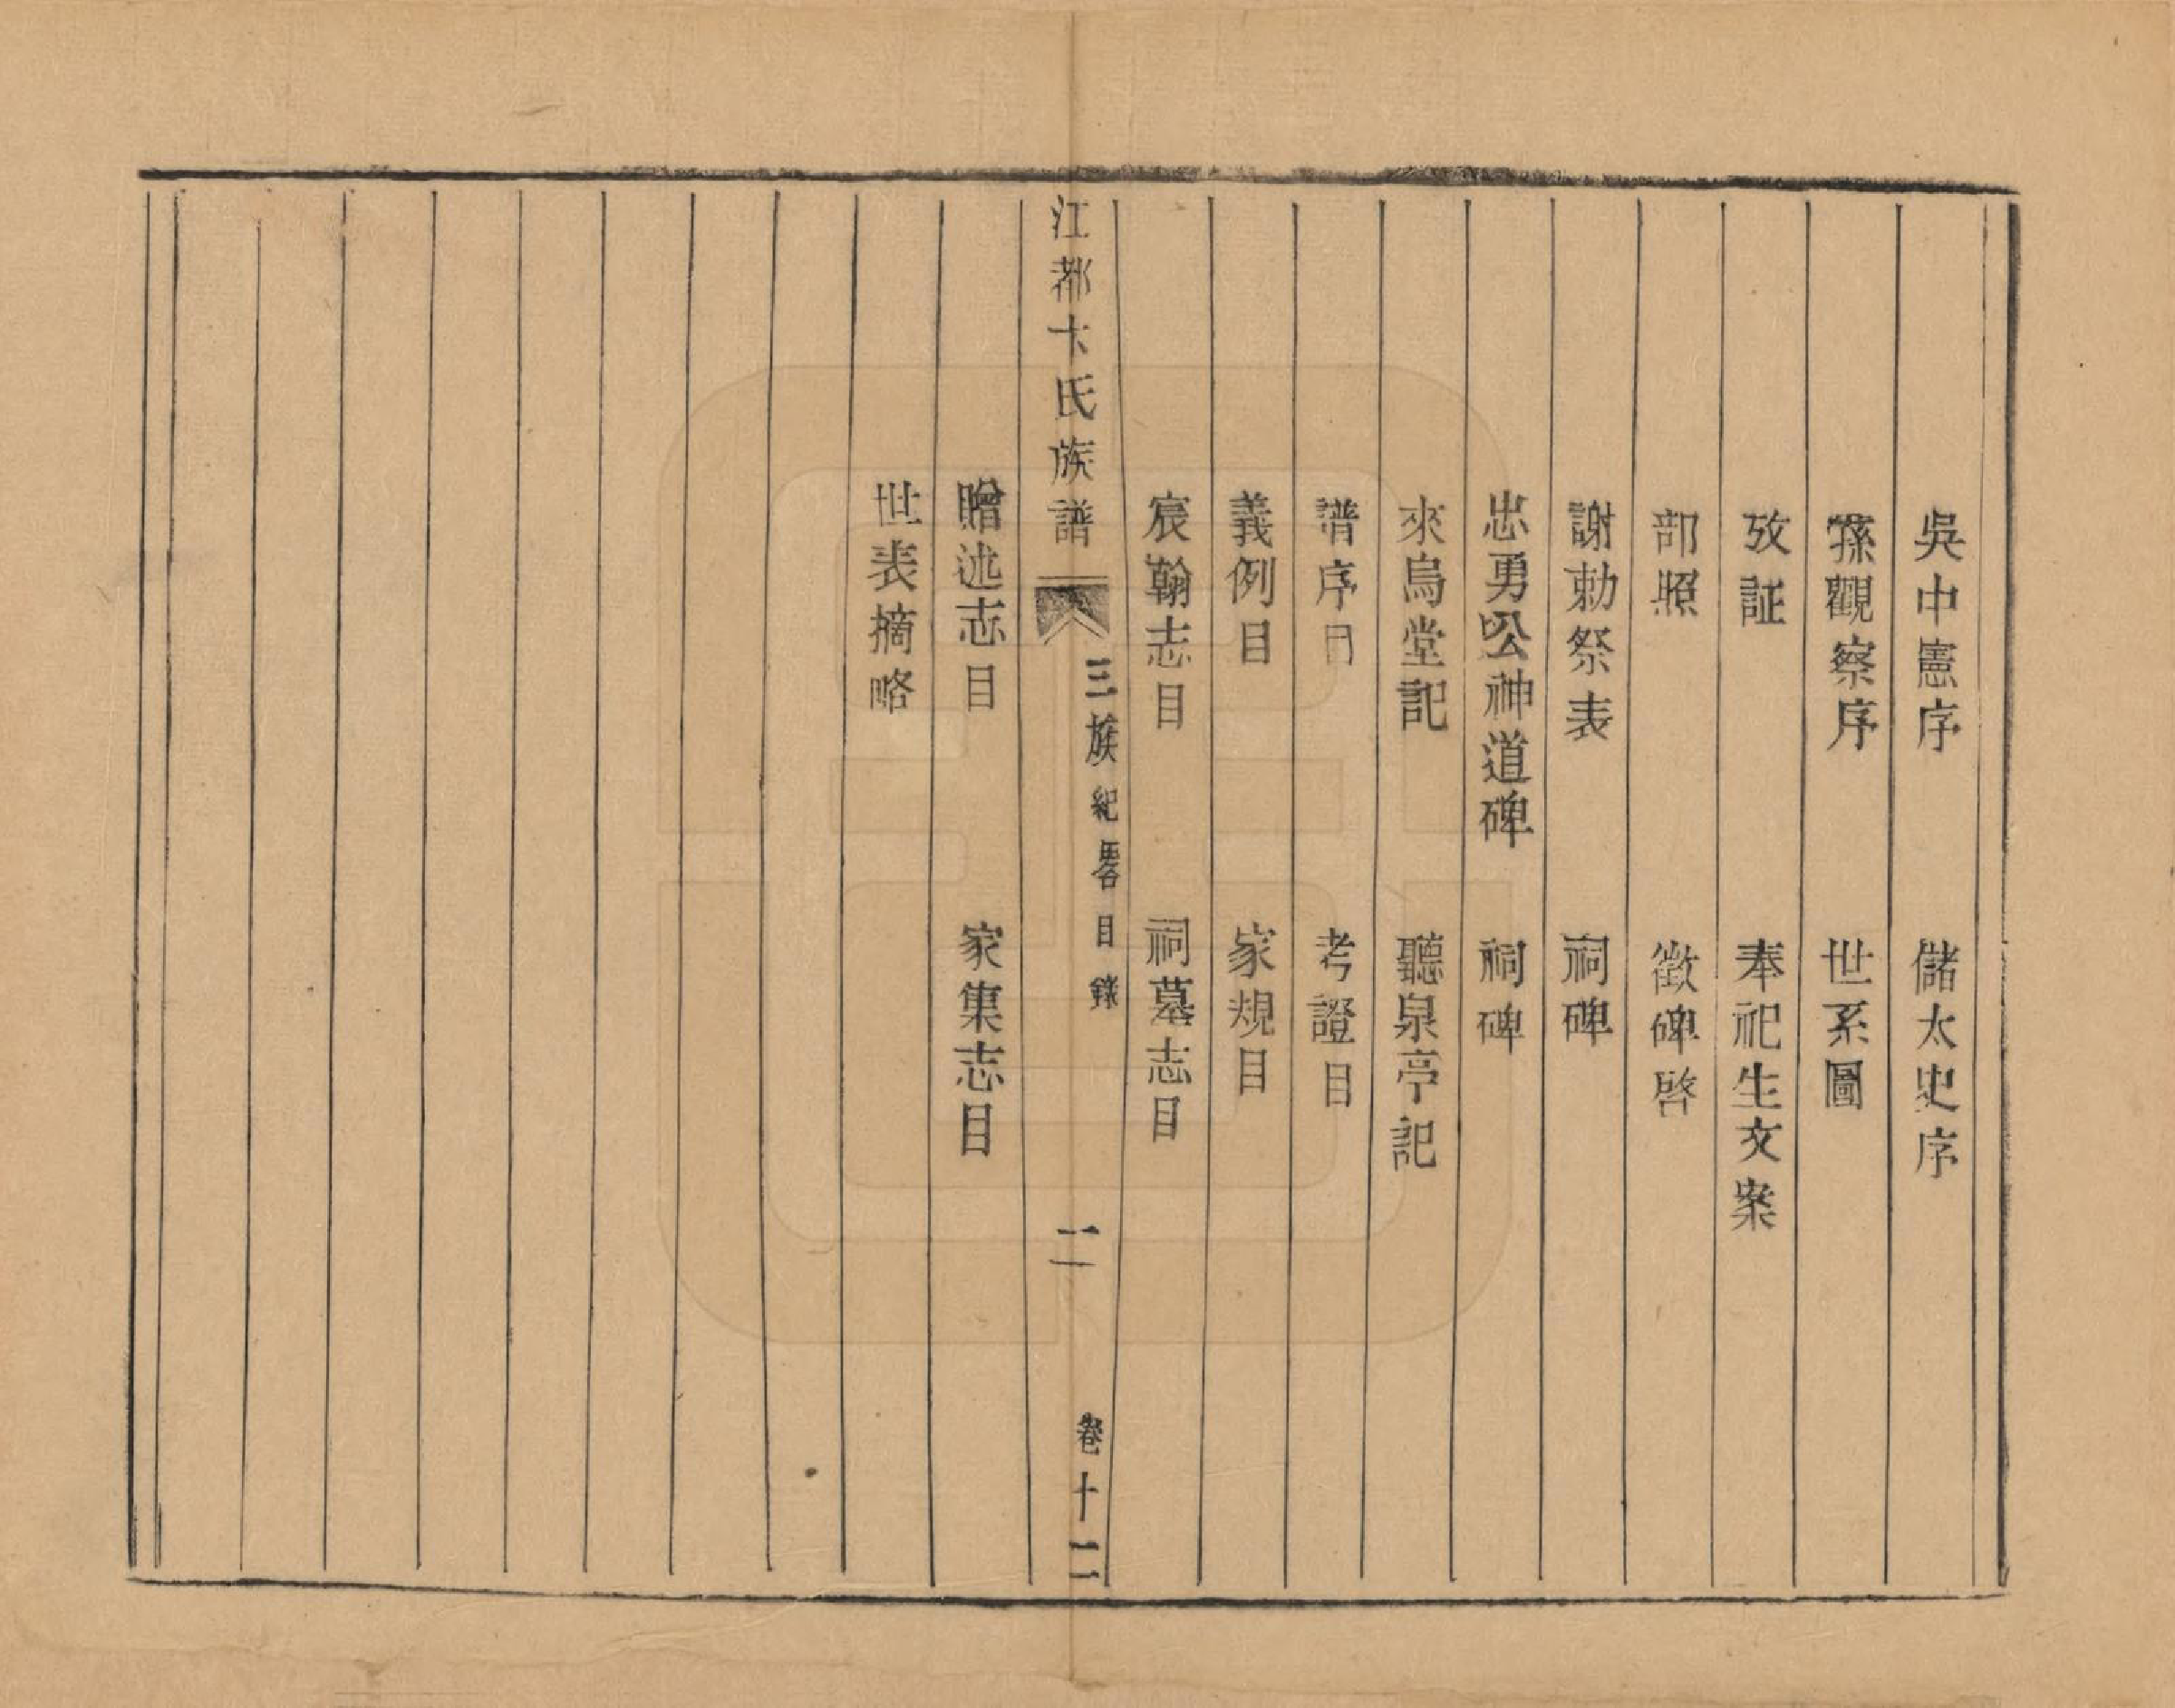 吳中憲序　儲太史序
孫觀察序　世系圖
攷証　奉祀生文案
部照　徵碑啓
謝勅祭表　祠碑
忠勇公神道碑　祠碑
來烏堂記　聽泉亭記
譜序目　考證目
義例目　家規目
宸翰志目　祠墓志目
江都卞氏族譜　三族紀畧目錄　二　卷十二
贈述志目　家集志目
世表摘略